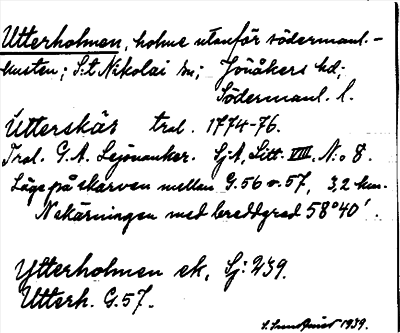 Utterholmen, holme utanför södermanl.-
kusten; S:t Nikolai sn; Jönåkers hd;
Södermanl. l.
Utterskär tral. 1774-76.
Tral. G.A. Lejonanker. Sj.A, Litt. VIII, N:o 8.
Läge på skarven mellan G.56 o. 57, 3,2 km.
N skärningen med breddgrad 58°40'.
Ytterholmen ek, Sj: 239.
Utterh. G.57.
1939.